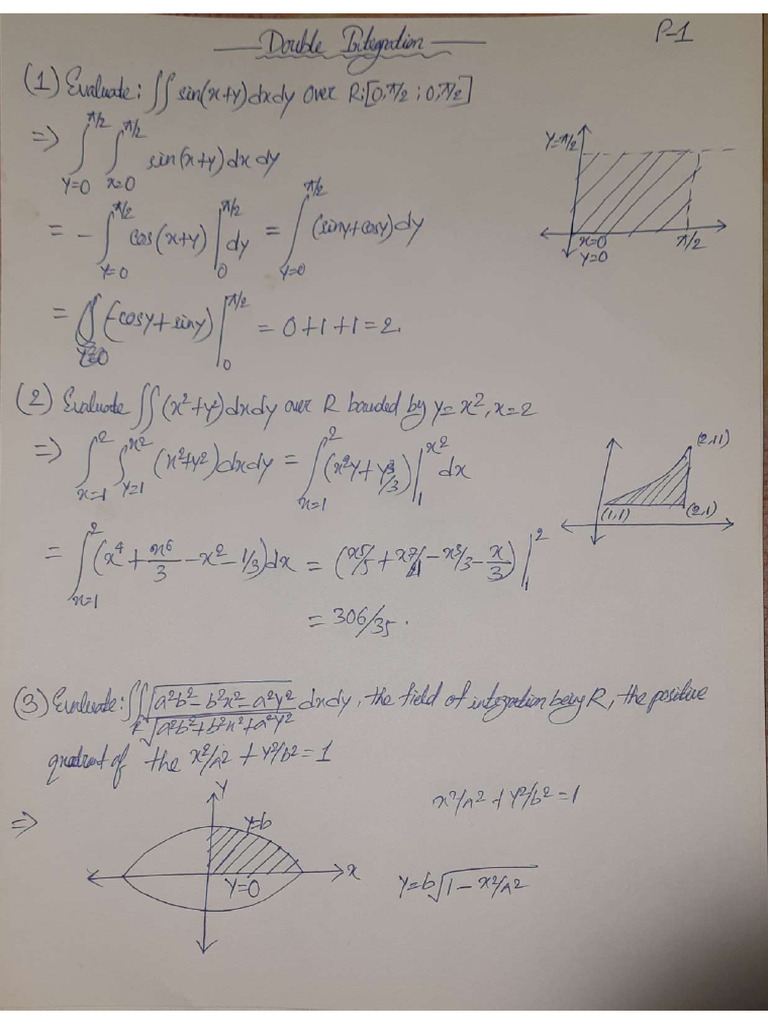 Double Integration
P-1
(1) Evaluate: ∬ sin(x+y) dx dy over R:[0,π/2 ; 0,π/2]
⇒ ∫_{y=0}^{π/2} ∫_{x=0}^{π/2} sin(x+y) dx dy
Y=π/2
x=0
π/2
Y=0
= - ∫_{y=0}^{π/2} cos(x+y) |_0^{π/2} dy = ∫_{y=0}^{π/2} (siny+cosy) dy
= (-cosy+siny) |_0^{π/2} = 0+1+1=2.
(2) Evaluate ∬ (x²+y²) dx dy over R bounded by y=x², x=2
⇒ ∫_{x=1}^{2} ∫_{y=1}^{x²} (x²+y²) dx dy = ∫_{x=1}^{2} (x²y+y³/3) |_1^{x²} dx
(2,1)
(1,1)
= ∫_{x=1}^{2} (x⁴+x⁶/3-x²-1/3) dx = (x⁵/5+x⁷/21-x³/3-x/3) |_1^2
= 306/35.
(3) Evaluate: ∬_R √(a²b²-b²x²-a²y²)/√(a²b²+b²x²+a²y²) dx dy, the field of integration being R, the positive
quadrant of the x²/a²+y²/b²=1
⇒
Y
y=b
x
Y=0
x²/a²+y²/b²=1
y=b√(1-x²/a²)